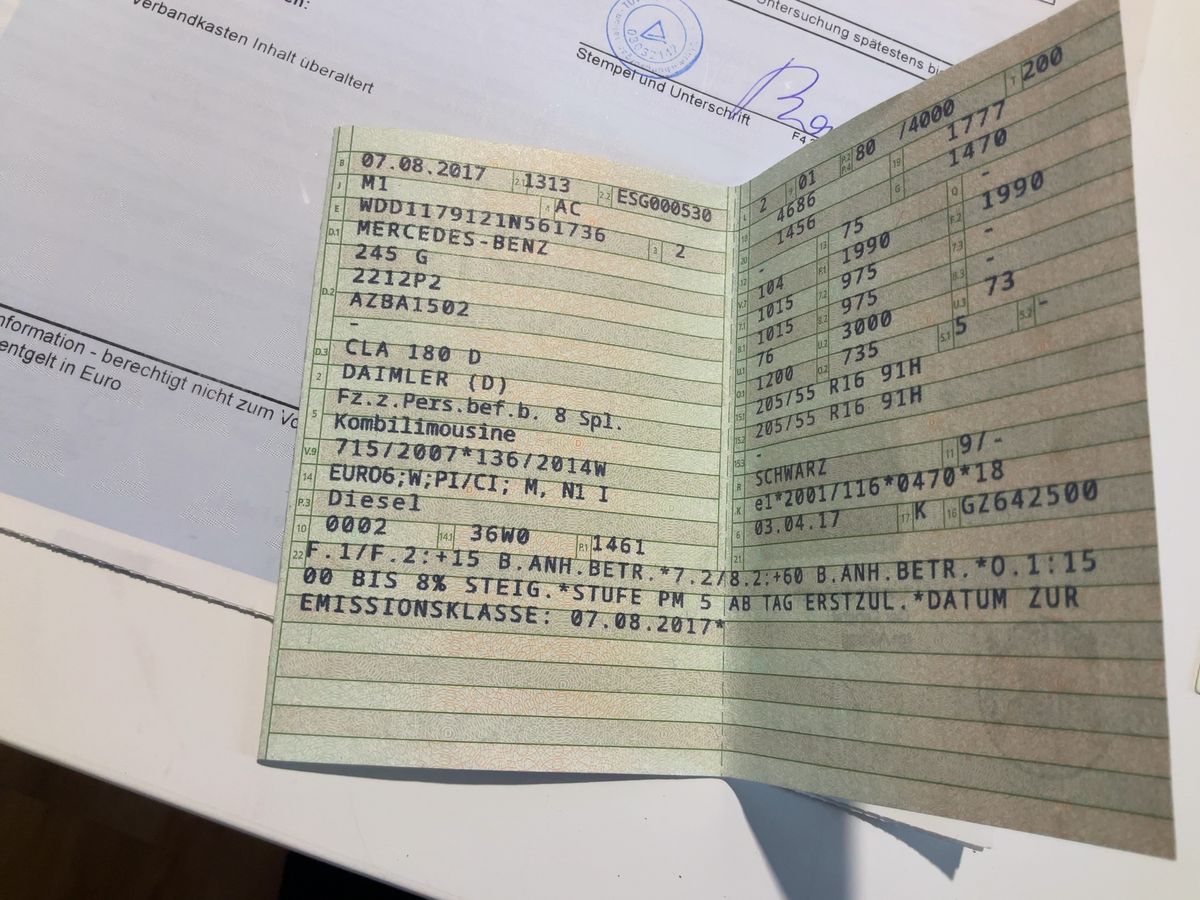 Verbandkasten Inhalt überaltert
Untersuchung spätestens bis
Stempel und Unterschrift
nformation - berechtigt nicht zum Vo
entgelt in Euro
B 07.08.2017 2.1 1313 2.2 ESG000530
J M1 4 AC
E WDD1179121N561736 3 2
D.1 MERCEDES-BENZ
245 G
D.2 2212P2
AZBA1502
-
D.3 CLA 180 D
2 DAIMLER (D)
5 Fz.z.Pers.bef.b. 8 Spl.
Kombilimousine
V.9 715/2007*136/2014W
14 EURO6;W;PI/CI; M, N1 I
P.3 Diesel
10 0002 14.1 36W0 P.1 1461
L 2 9 01 P.2 P.4 80 /4000 T 200
18 4686 19 1777
20 1456 G 1470
12 - 13 75 Q -
V.7 104 F.1 1990 F.2 1990
7.1 1015 7.2 975 7.3 -
8.1 1015 8.2 975 8.3 -
U.1 76 U.2 3000 U.3 73
O.1 1200 O.2 735 S.1 5 S.2 -
15.1 205/55 R16 91H
15.2 205/55 R16 91H
15.3 -
R SCHWARZ 11 9/-
K e1*2001/116*0470*18
6 03.04.17 17 K 16 GZ642500
21
22 F.1/F.2:+15 B.ANH.BETR.*7.2/8.2:+60 B.ANH.BETR.*O.1:15
00 BIS 8% STEIG.*STUFE PM 5 AB TAG ERSTZUL.*DATUM ZUR
EMISSIONSKLASSE: 07.08.2017*